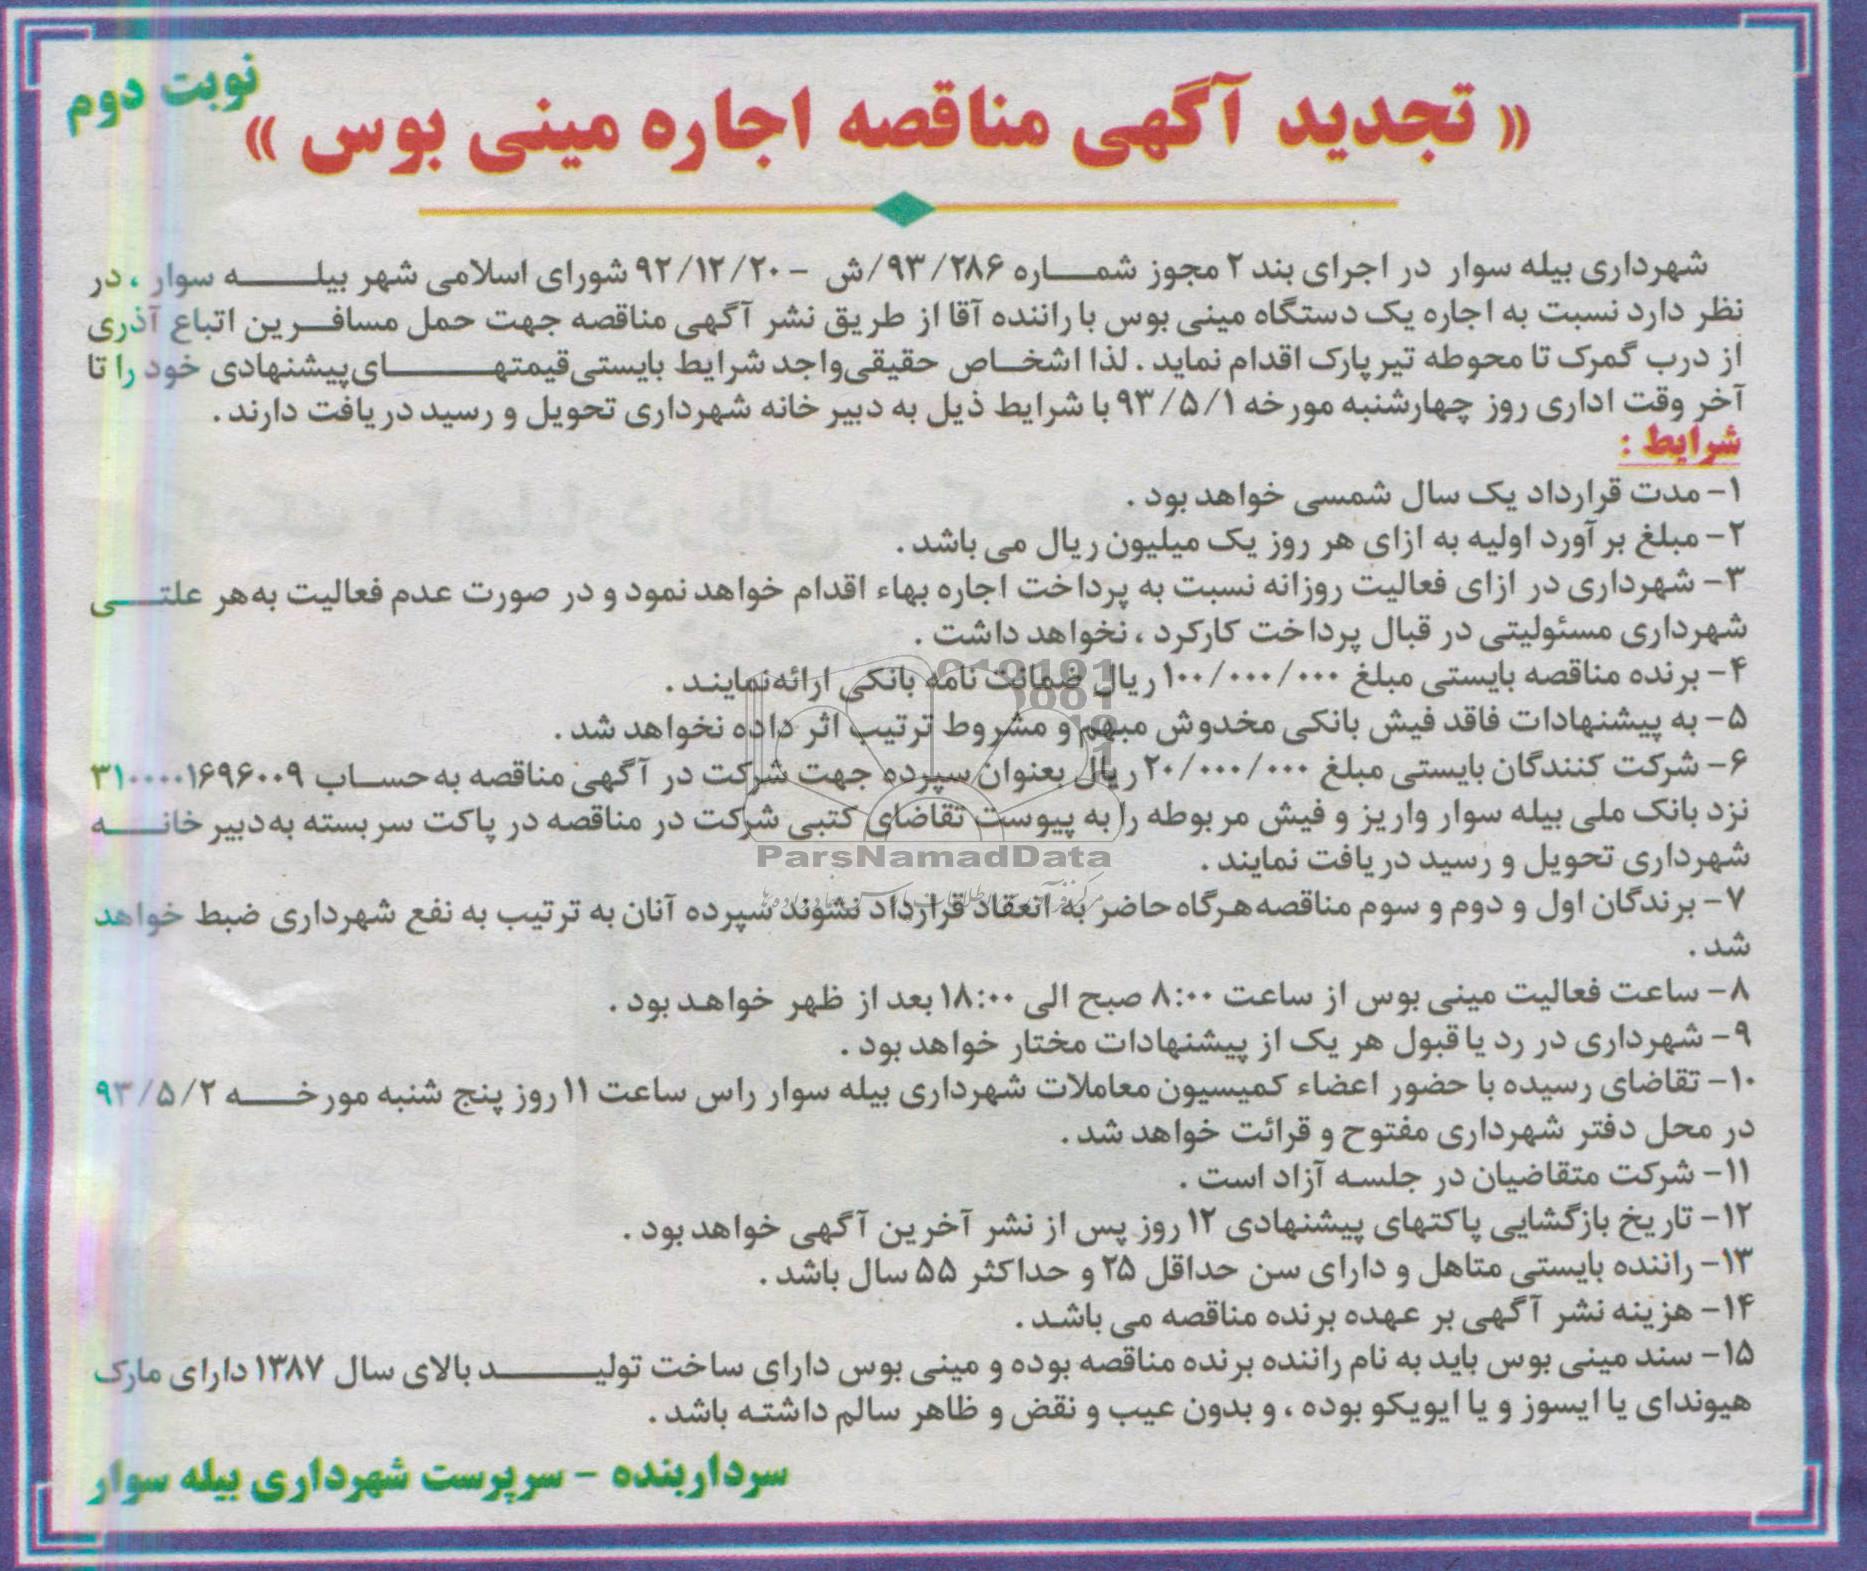 نوبت دوم
« تجدید آگهی مناقصه اجاره مینی بوس »
شهرداری بیله سوار در اجرای بند ۲ مجوز شماره ۹۳/۲۸۶/ش - ۹۲/۱۲/۲۰ شورای اسلامی شهر بیله سوار ، در
نظر دارد نسبت به اجاره یک دستگاه مینی بوس با راننده آقا از طریق نشر آگهی مناقصه جهت حمل مسافرین اتباع آذری
از درب گمرک تا محوطه تیر پارک اقدام نماید . لذا اشخاص حقیقی واجد شرایط بایستی قیمتهای پیشنهادی خود را تا
آخر وقت اداری روز چهارشنبه مورخه ۹۳/۵/۱ با شرایط ذیل به دبیر خانه شهرداری تحویل و رسید دریافت دارند .
شرایط :
۱- مدت قرارداد یک سال شمسی خواهد بود .
۲- مبلغ بر آورد اولیه به ازای هر روز یک میلیون ریال می باشد .
۳- شهرداری در ازای فعالیت روزانه نسبت به پرداخت اجاره بهاء اقدام خواهد نمود و در صورت عدم فعالیت به هر علتی
شهرداری مسئولیتی در قبال پرداخت کارکرد ، نخواهد داشت .
۴- برنده مناقصه بایستی مبلغ ۱۰۰/۰۰۰/۰۰۰ ریال ضمانت نامه بانکی ارائه نمایند .
۵- به پیشنهادات فاقد فیش بانکی مخدوش مبهم و مشروط ترتیب اثر داده نخواهد شد .
۶- شرکت کنندگان بایستی مبلغ ۲۰/۰۰۰/۰۰۰ ریال بعنوان سپرده جهت شرکت در آگهی مناقصه به حساب ۳۱۰۰۰۰۱۶۹۶۰۰۹
نزد بانک ملی بیله سوار واریز و فیش مربوطه را به پیوست تقاضای کتبی شرکت در مناقصه در پاکت سر بسته به دبیر خانه
شهرداری تحویل و رسید دریافت نمایند .
ParsNamadData
۷- برندگان اول و دوم و سوم مناقصه هرگاه حاضر به انعقاد قرارداد نشوند سپرده آنان به ترتیب به نفع شهرداری ضبط خواهد
شد .
۸- ساعت فعالیت مینی بوس از ساعت ۸:۰۰ صبح الی ۱۸:۰۰ بعد از ظهر خواهد بود .
۹- شهرداری در رد یا قبول هر یک از پیشنهادات مختار خواهد بود .
۱۰- تقاضای رسیده با حضور اعضاء کمیسیون معاملات شهرداری بیله سوار راس ساعت ۱۱ روز پنج شنبه مورخه ۹۳/۵/۲
در محل دفتر شهرداری مفتوح و قرائت خواهد شد .
۱۱- شرکت متقاضیان در جلسه آزاد است .
۱۲- تاریخ بازگشایی پاکتهای پیشنهادی ۱۲ روز پس از نشر آخرین آگهی خواهد بود .
۱۳- راننده بایستی متاهل و دارای سن حداقل ۲۵ و حداکثر ۵۵ سال باشد .
۱۴- هزینه نشر آگهی بر عهده برنده مناقصه می باشد .
۱۵- سند مینی بوس باید به نام راننده برنده مناقصه بوده و مینی بوس دارای ساخت تولید بالای سال ۱۳۸۷ دارای مارک
هیوندای یا ایسوز و یا ایویکو بوده ، و بدون عیب و نقض و ظاهر سالم داشته باشد .
سرداربنده - سرپرست شهرداری بیله سوار